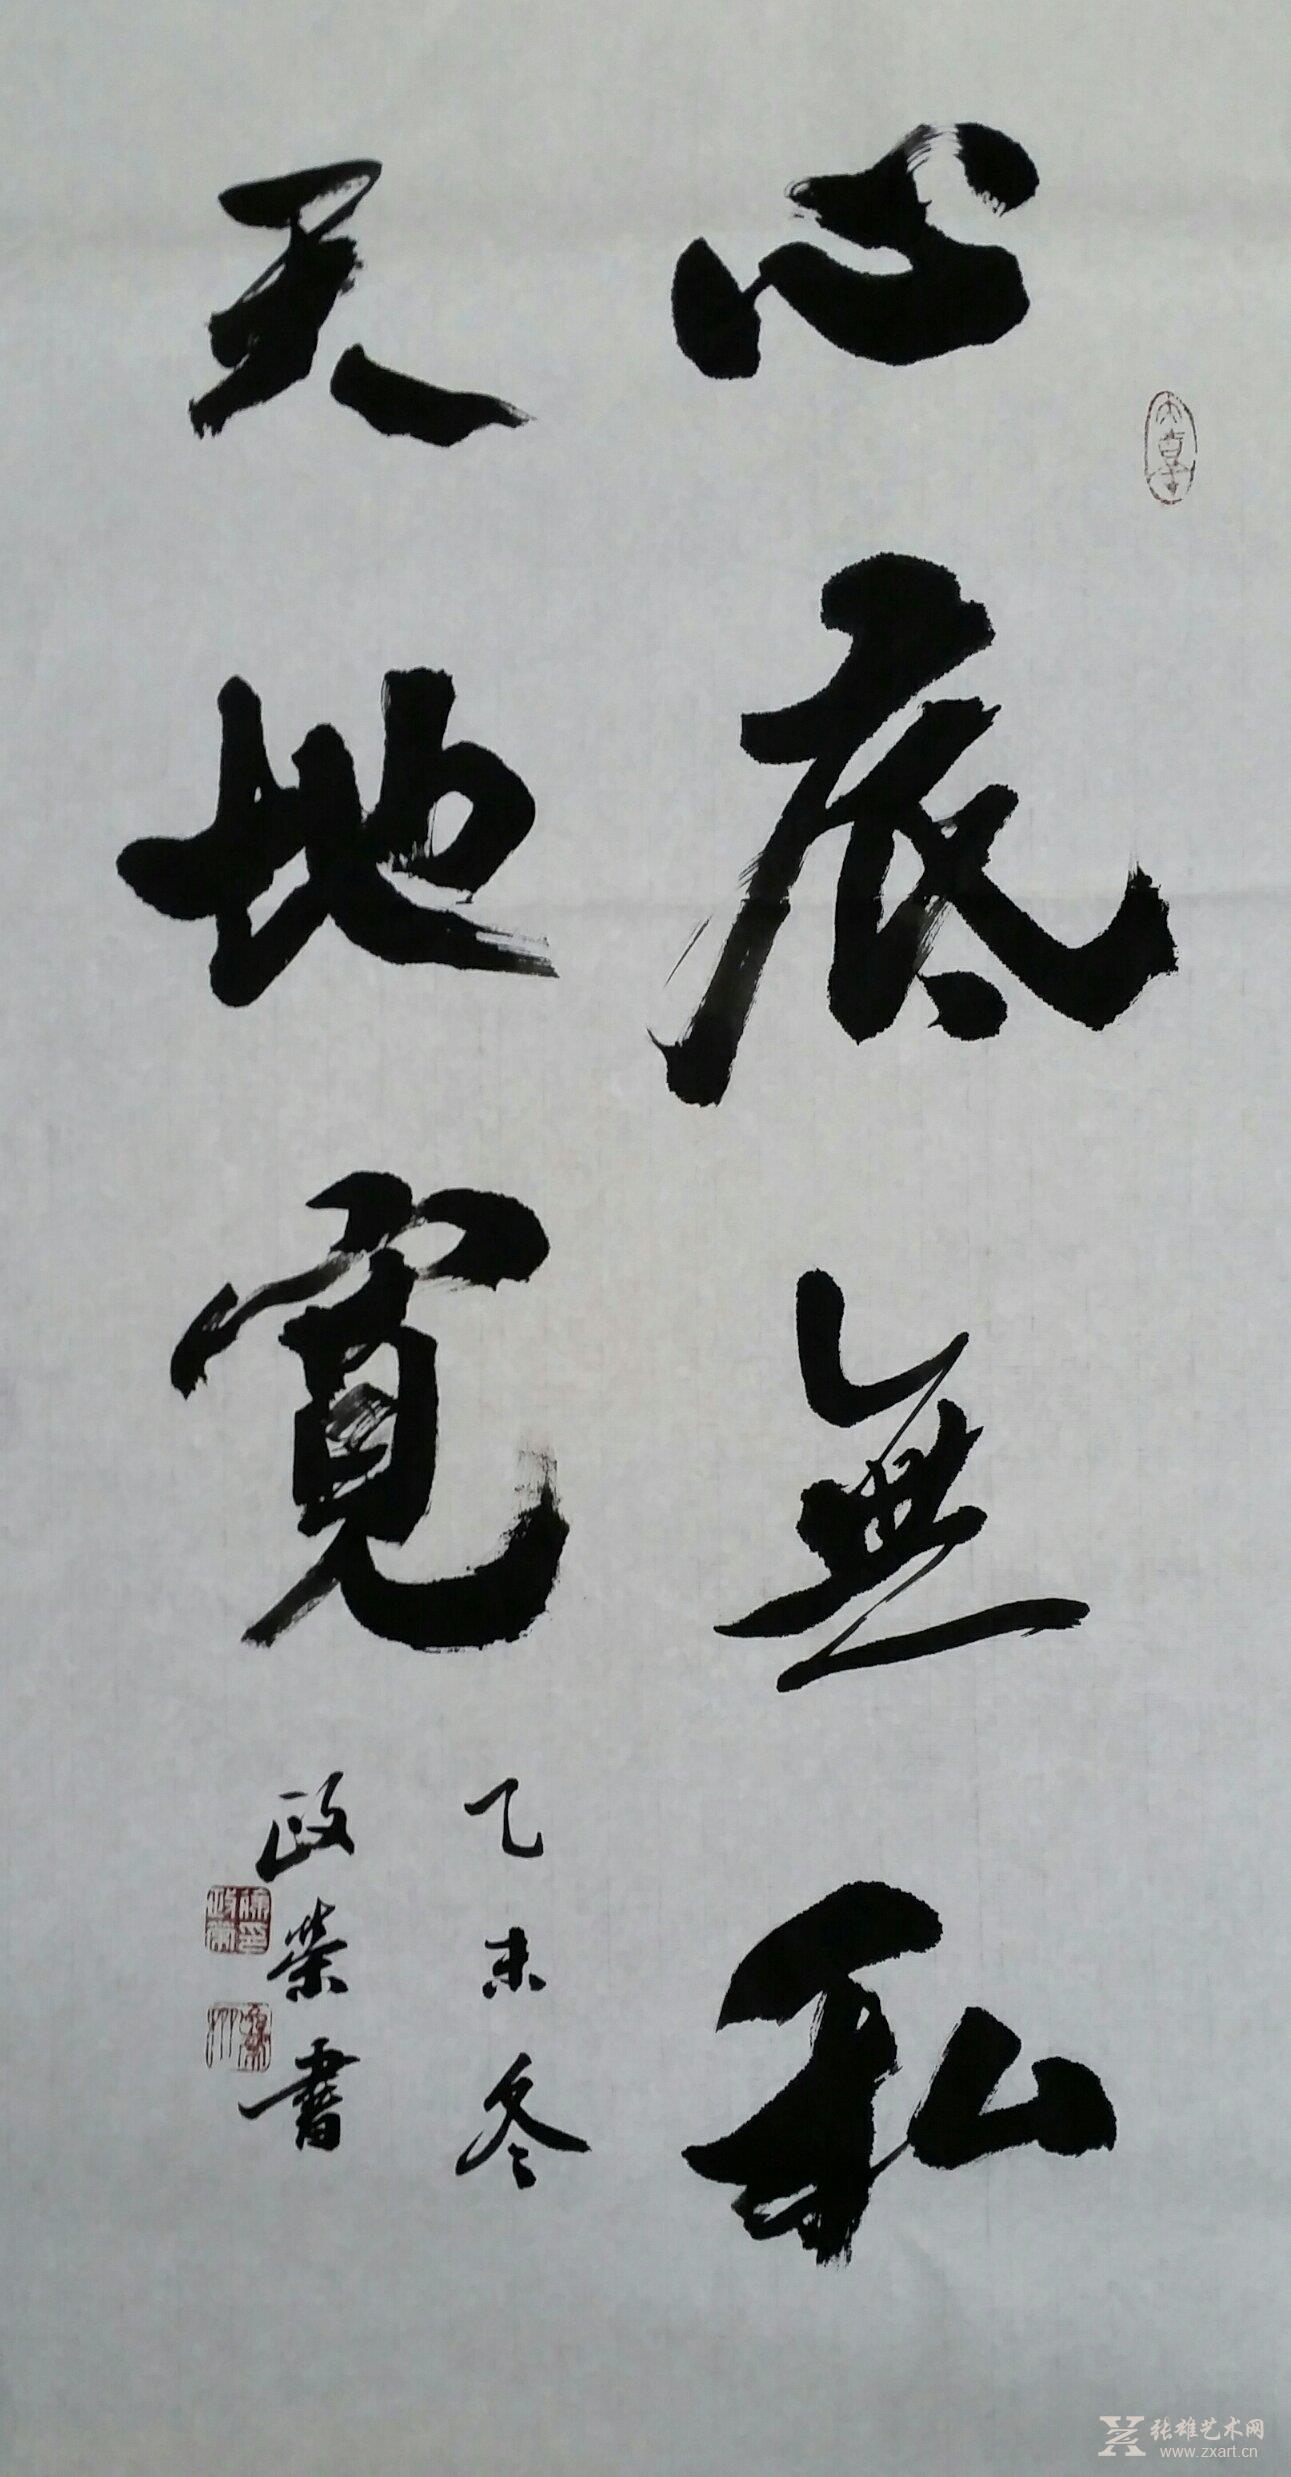 心底無私
天地寬
乙未冬
政榮書
张雄艺术网
www.zxart.cn